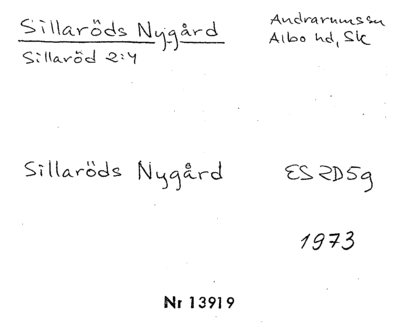 Sillaröds Nygård
Sillaröd 2:4
Andrarums sn
Albo hd, Sk
Sillaröds Nygård
ES 2D5g
1973
Nr 13919